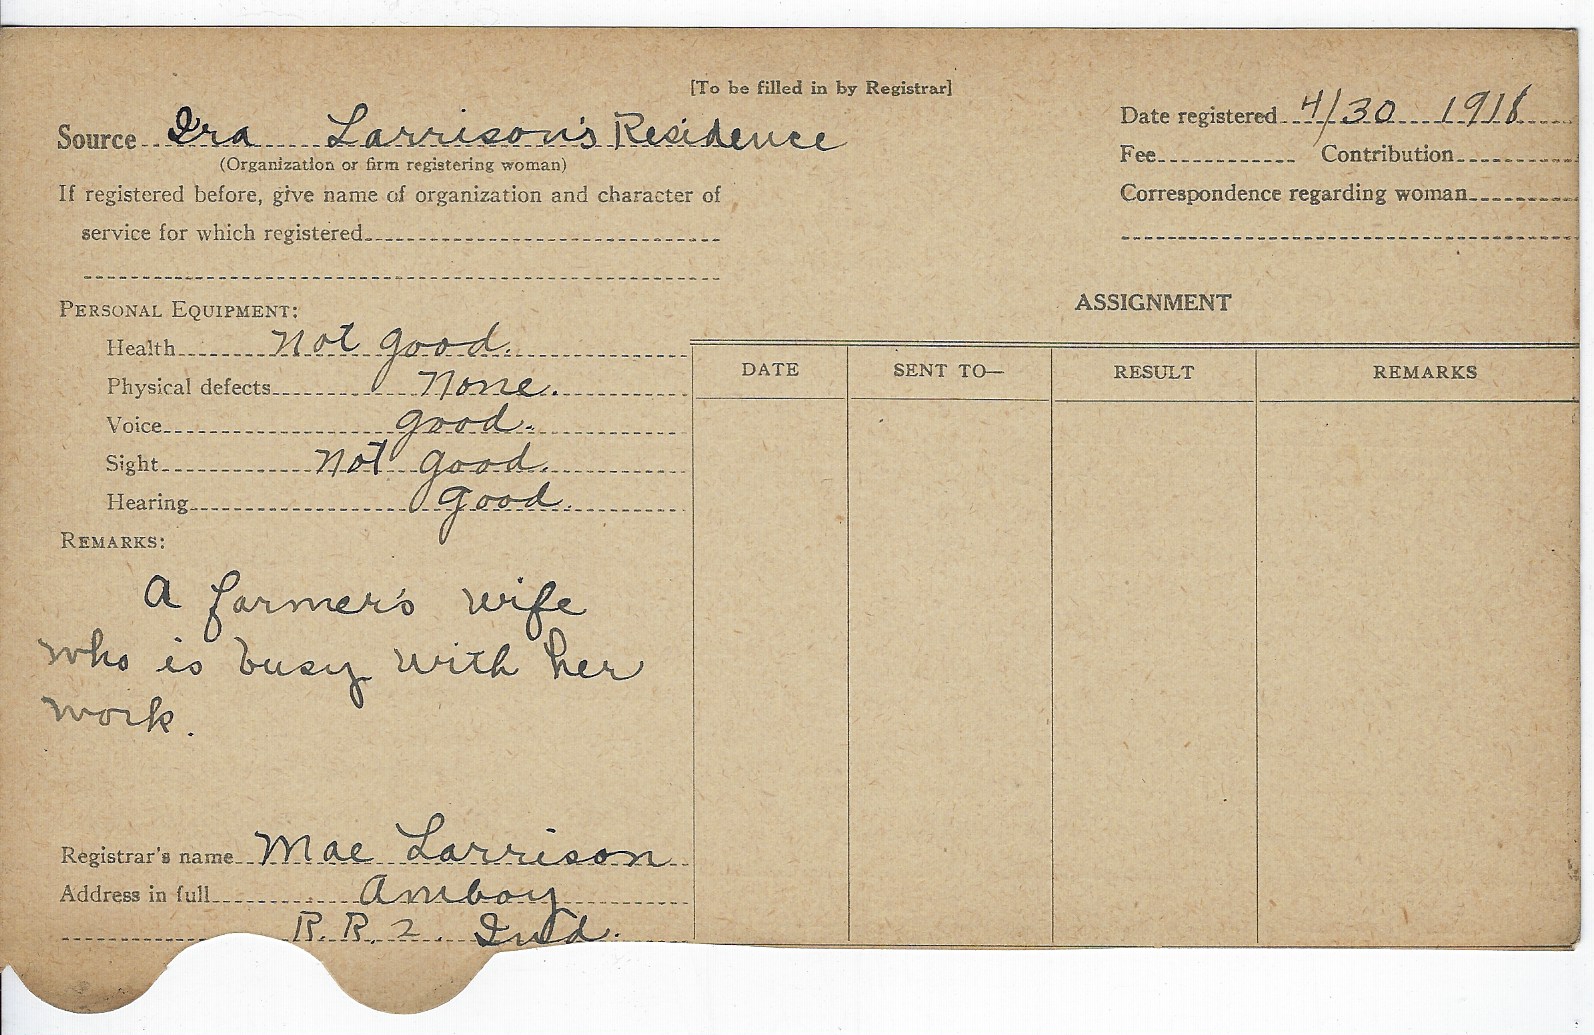 [To be filled in by Registrar]
Source Ira Larrison's Residence
(Organization or firm registering woman)
If registered before, give name of organization and character of
service for which registered
Date registered 4/30 1918
Fee Contribution
Correspondence regarding woman
PERSONAL EQUIPMENT:
Health Not good.
Physical defects None.
Voice good.
Sight Not good.
Hearing good.
REMARKS:
A farmer's wife
who is busy with her
work.
Registrar's name Mae Larrison
Address in full Amboy
R. R. 2. Ind.
ASSIGNMENT
DATE SENT TO— RESULT REMARKS